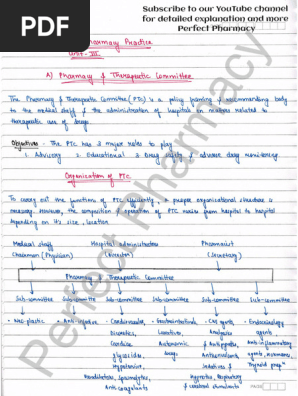 PDF
Subscribe to our YouTube channel
for detailed explanation and more
Perfect Pharmacy
Pharmacy Practice
Unit - III
A) Pharmacy & Therapeutic Committee
The Pharmacy & Therapeutic Committee (PTC) is a policy framing & recommending body
to the medical staff & the administration of hospitals on matters related to
therapeutic use of drugs.
Objectives - The PTC has 3 major roles to play
1. Advisory 2. Educational 3. Drug safety & adverse drug monitoring.
Organization of PTC
To carry out the functions of PTC efficiently, a proper organizational structure is
necessary. However, the composition & operation of PTC varies from hospital to hospital
depending on its size, location.
Medical staff Hospital administrators Pharmacist
Chairman (Physician) (Director) (Secretary)
Pharmacy & Therapeutic Committee
Sub-committee Sub-committee Sub-committee Sub-committee Sub-committee Sub-committee
Cardiovascular, Gastrointestinal, CNS agents, Endocrinology
Diuretics, Laxatives, Analgesics agents,
Cardiac Autonomic & Antipyretics, Anti-inflammatory
glycosides, drugs Anticonvulsants agents, hormones,
Hypotensive, Sedatives & Thyroid prep
Vasodilators, Hypnotics, Respiratory
Anti-coagulants & cerebral stimulants
PAGE
Perfect Pharmacy